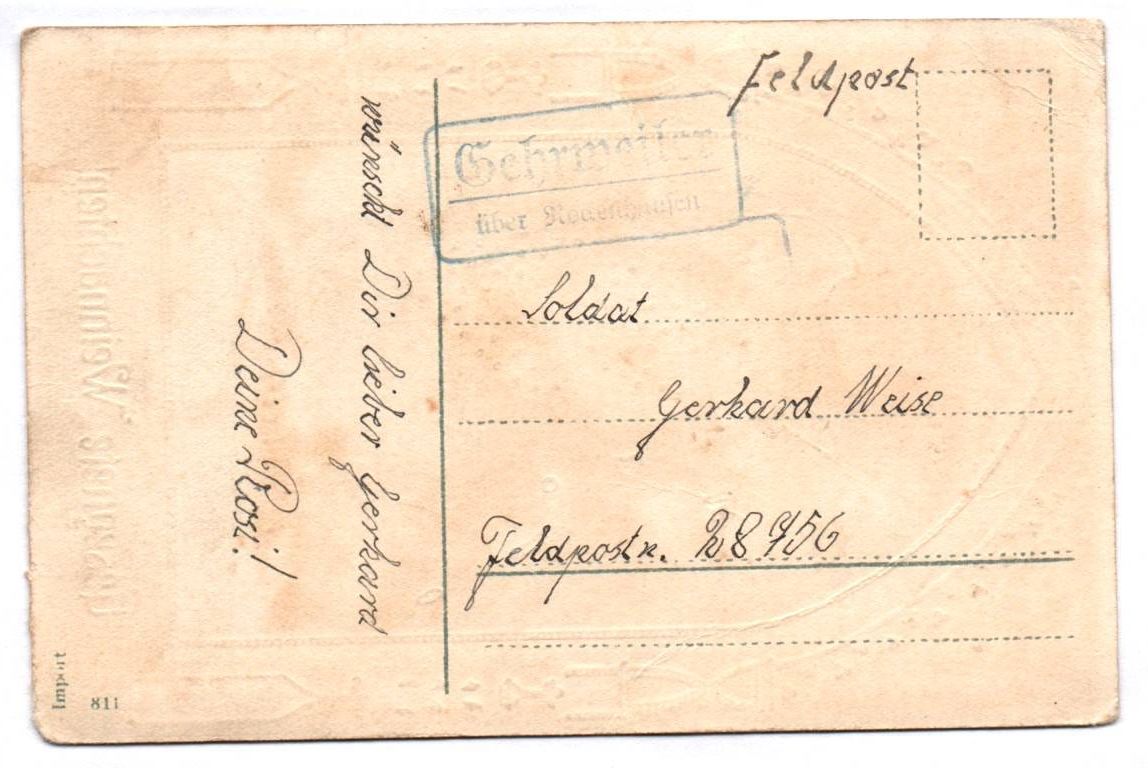 Feldpost
Gehrweiler
über Rockenhausen
wünscht Dir lieber Gerhard
Deine Rosi!
Soldat
Gerhard Weise
Feldpostn. 28756
Import
811